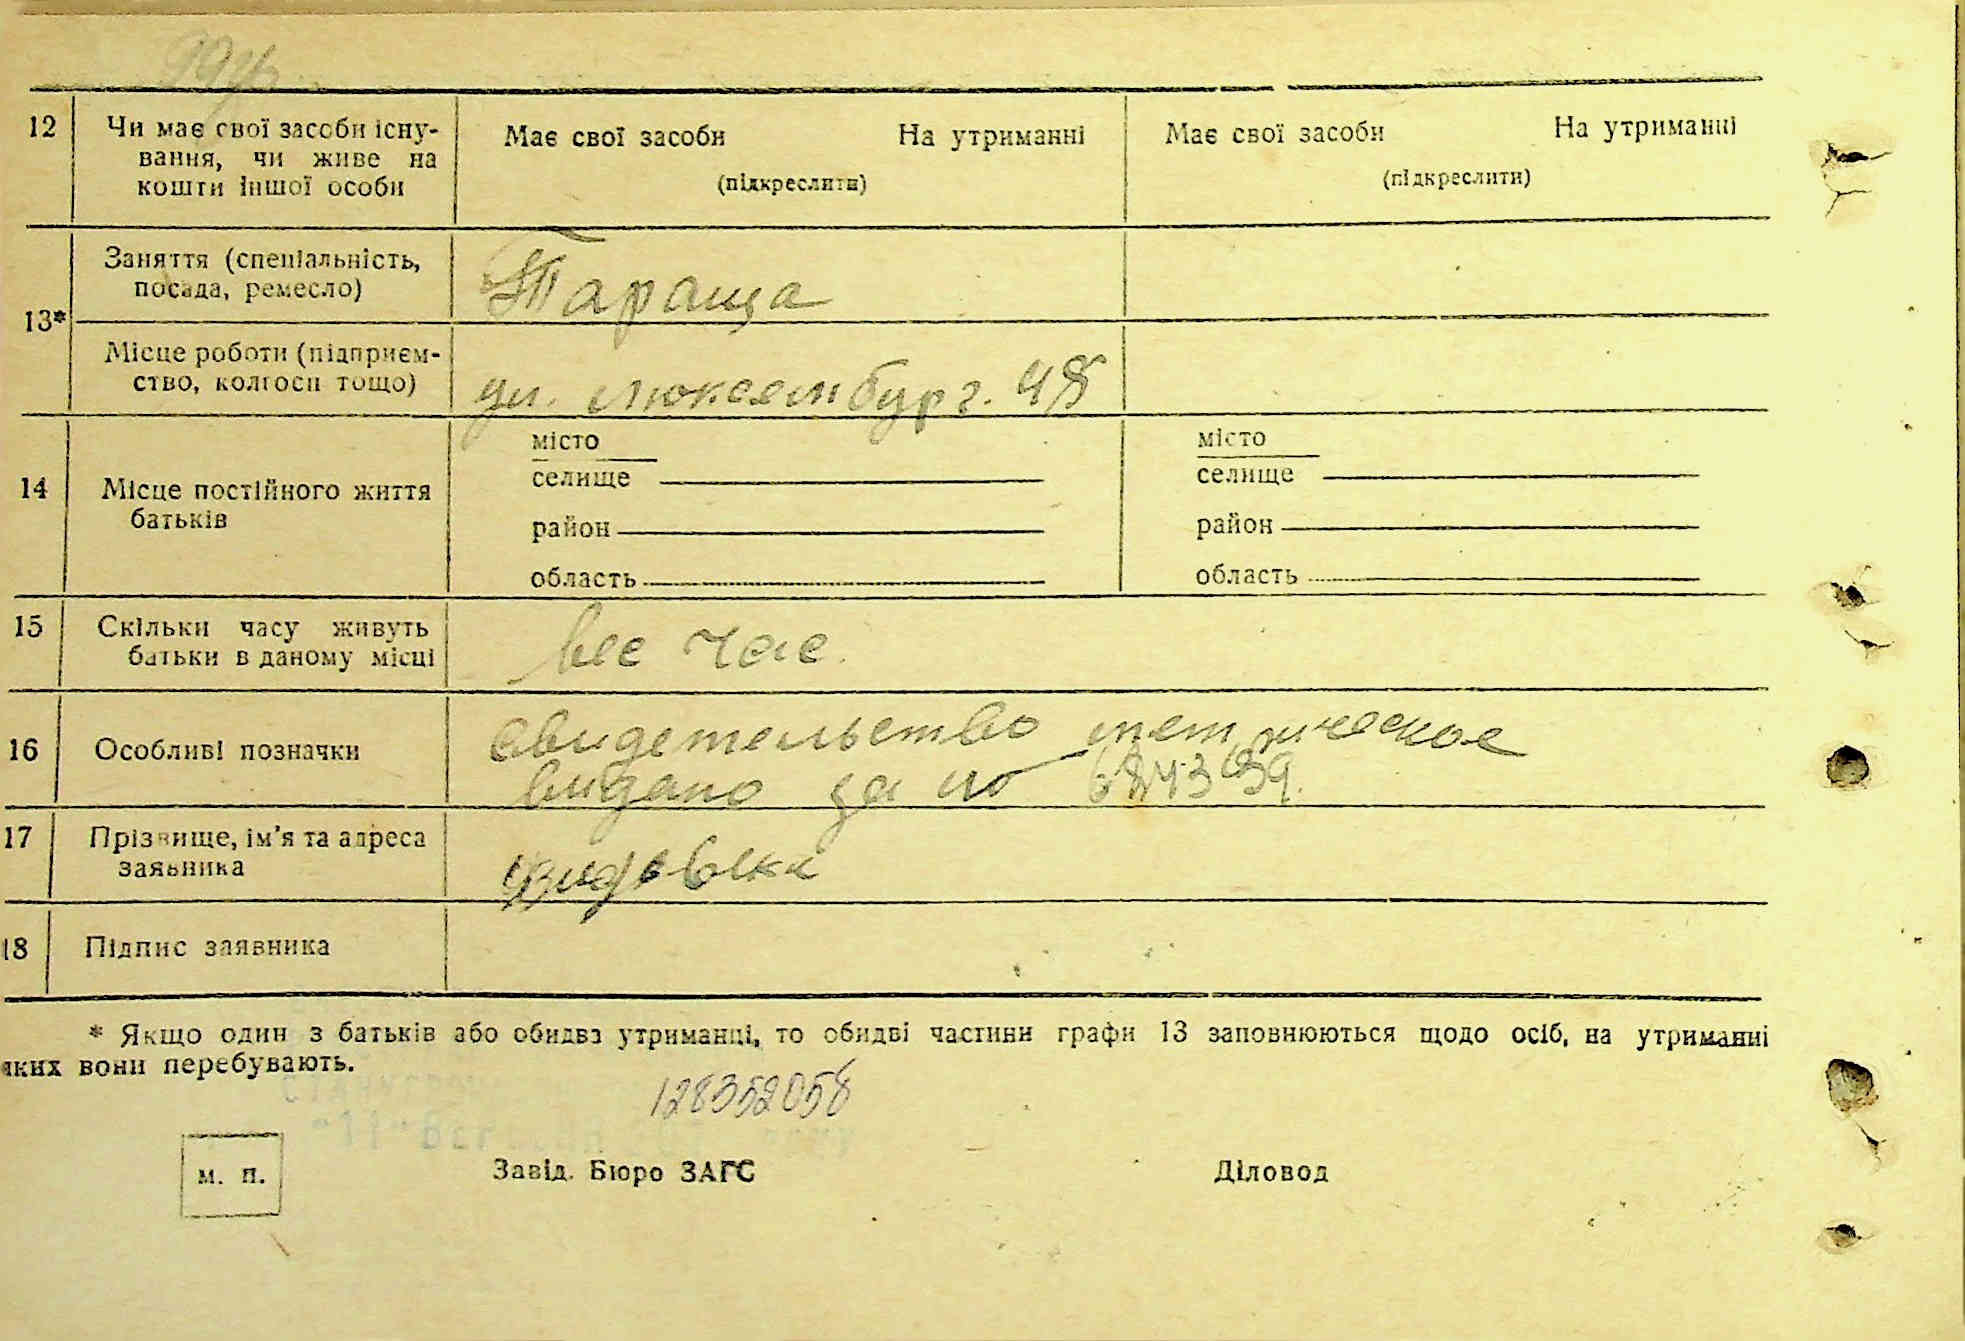 12
Чи має свої засоби існу-
вання, чи живе на
кошти іншої особи
Має свої засоби На утриманні
(підкреслити)
Має свої засоби На утриманні
(підкреслити)
13*
Заняття (спеціальність,
посада, ремесло)
Тараща
Місце роботи (підприєм-
ство, колгосп тощо)
ул. Люксембург.
14
Місце постійного життя
батьків
місто
селище
район
область
місто
селище
район
область
15
Скільки часу живуть
батьки в даному місці
весь час.
16
Особливі позначки
свидетельство метрическое
видано за но
17
Прізвище, ім'я та адреса
заявника
18
Підпис заявника
* Якщо один з батьків або обидва утриманці, то обидві частини графи 13 заповнюються щодо осіб, на утриманні
яких вони перебувають.
128352058
м. п.
Завід. Бюро ЗАГС
Діловод